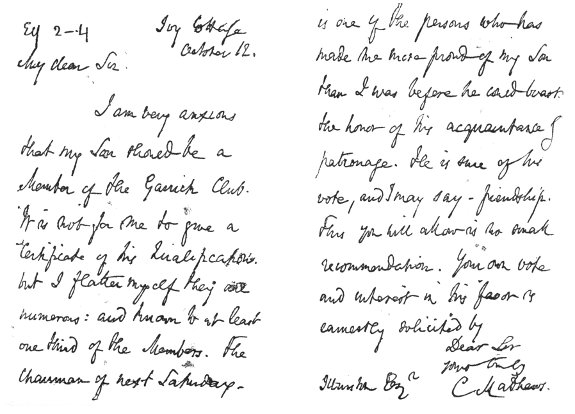 Ey 2-4 Ivy Cottage
October 12.
My dear Sir.
I am very anxious
that my Son should be a
Member of the Garrick Club.
It is not for me to give a
Certificate of his Qualifications.
but I flatter myself they are
numerous: and known to at least
one third of the Members. The
Chairman of next Saturday-
is one of the persons who has
made me more proud of my Son
than I was before he could boast
the honor of his acquaintance &
patronage. He is sure of his
vote, and I may say - friendship.
This you will allow is no small
recommendation. Your own vote
and interest in his favor is
earnestly solicited by
Dear Sir
yours truly
Winston Esqr C Mathews.